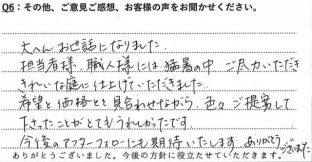 Q6：その他、ご意見ご感想、お客様の声をお聞かせください。
大へんお世話になりました。
担当者様、職人様には猛暑の中 ご尽力いただき
きれいな庭に仕上げていただきました。
希望と価格とを見合わせながら、色々ご提案して
下さったことがとてもうれしかったです。
今後のアフターフォローにも期待いたします。ありがとうございました
ありがとうございました。今後の方針に役立たせていただきます。